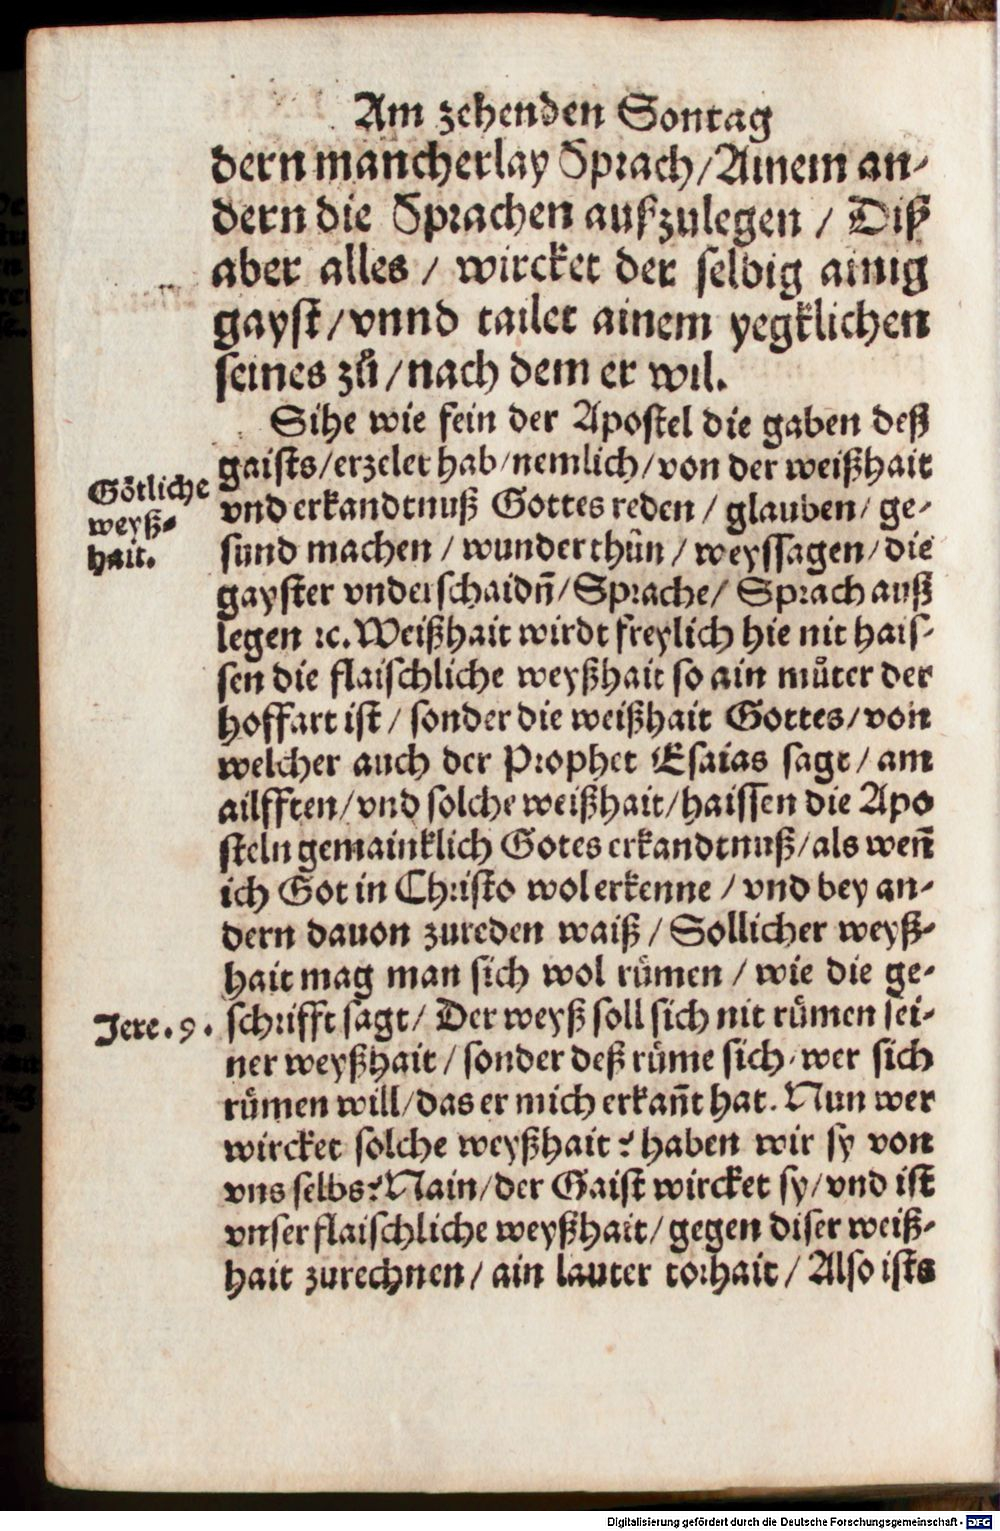 Am zehenden Sontag
dern mancherlay Sprach/Ainem an-
dern die Sprachen außzulegen / Diß
aber alles / wircket der selbig ainig
gayst/vnnd tailet ainem yegklichen
seines zů/nach dem er wil.
Sihe wie fein der Apostel die gaben deß
gaists/erzelet hab/nemlich/von der weißhait
vnd erkandtnuß Gottes reden / glauben/ ge-
sund machen / wunder thůn / weyssagen/die
gayster vnderschaidñ/Sprache/ Sprach auß
legen ꝛc. Weißhait wirdt freylich hie nit hais-
sen die flaischliche weyßhait so ain můter der
hoffart ist / sonder die weißhait Gottes/von
welcher auch der Prophet Esaias sagt/ am
ailfften/vnd solche weißhait/haissen die Apo
steln gemainklich Gotes erkandtnuß/als weñ
ich Got in Christo wol erkenne / vnd bey an-
dern dauon zureden waiß / Sollicher weyß-
hait mag man sich wol růmen / wie die ge-
schrifft sagt/ Der weyß soll sich nit růmen sei-
ner weyßhait / sonder deß růme sich/wer sich
růmen will/das er mich erkañt hat. Nun wer
wircket solche weyßhait? haben wir sy von
vns selbs? Nain/der Gaist wircket sy/vnd ist
vnser flaischliche weyßhait/ gegen diser weiß-
hait zurechnen/ ain lauter torhait / Also ists
Götliche
weyß-
hait.
Jere. 9.
Digitalisierung gefördert durch die Deutsche Forschungsgemeinschaft - DFG